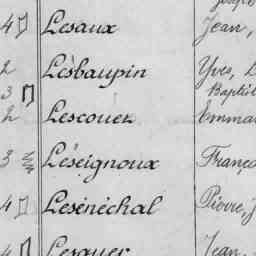 4 Lesaux Jean,
2 Lesbaupin Yves,
3 Baptis
2 Lescouez Emma
3 Léseignoux França
4 Lesénéchal Pierre, J
4 Lesquer Jean